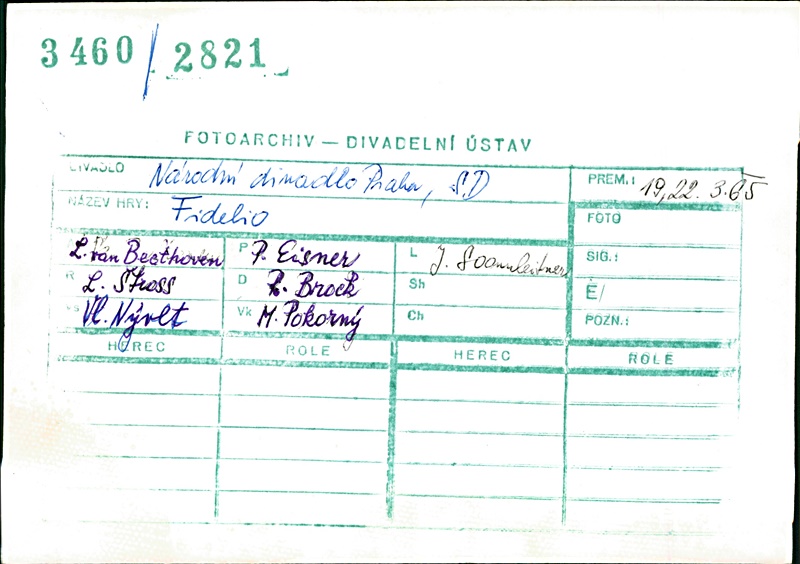 3460/2821
FOTOARCHIV — DIVADELNÍ ÚSTAV
DIVADLO Národní divadlo Praha, SD
PREM.: 19,22. 3.65
NÁZEV HRY: Fidelio
FOTO
L. van Beethoven P P. Eisner L J.
SIG.:
R L. Štros D R. Brock Sh
Ė/
Vl. Nývlt Vk M. Pokorný Ch
POZN.:
HEREC ROLE HEREC ROLE